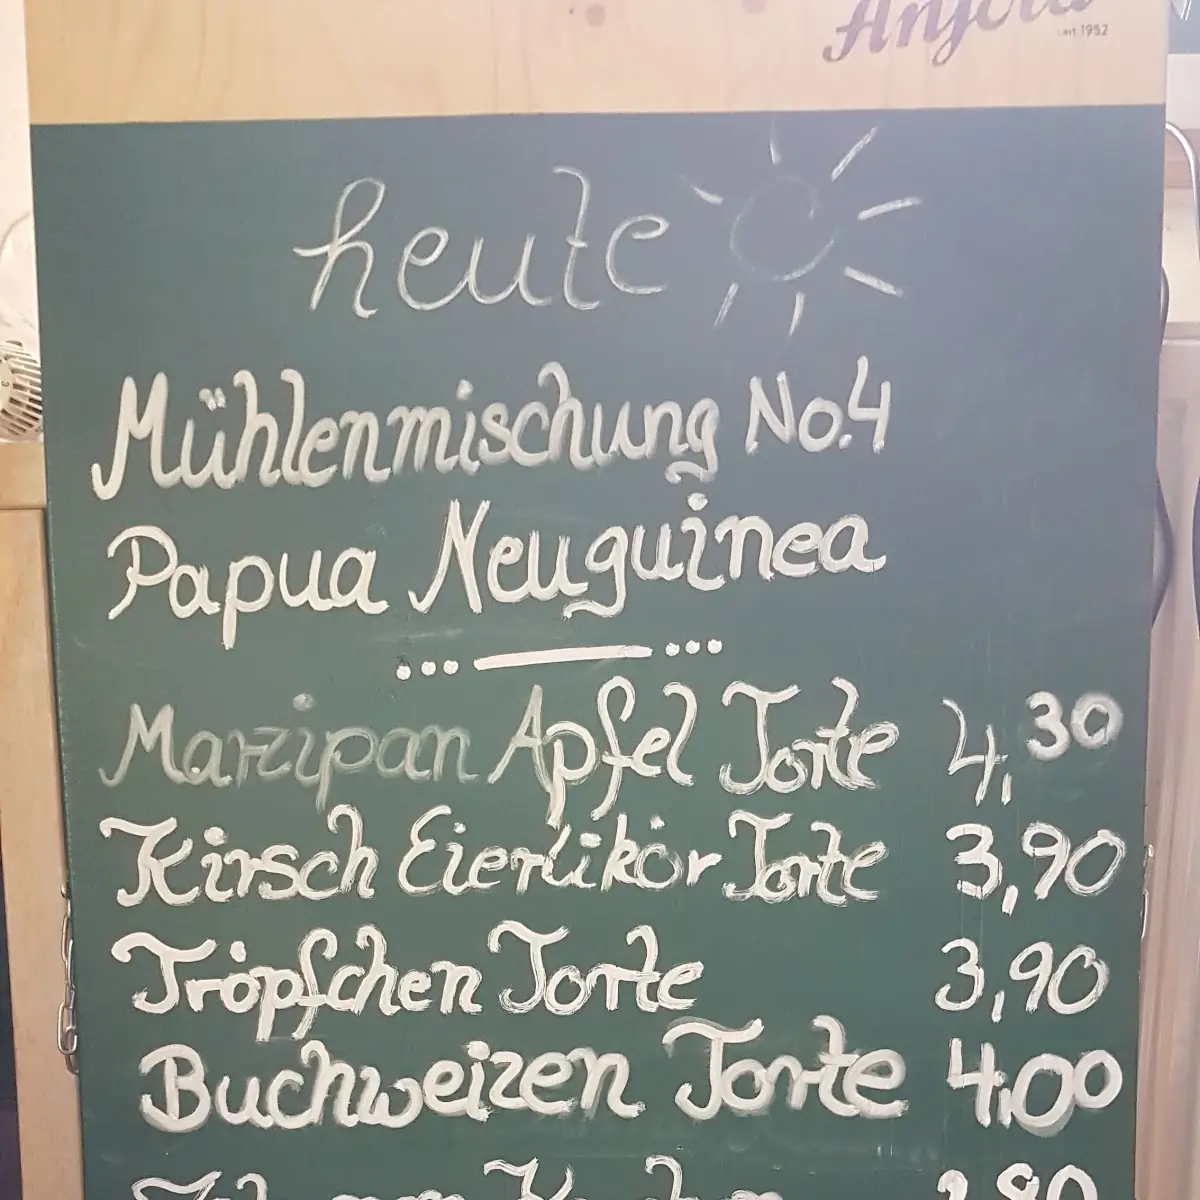 seit 1952
heute
Mühlenmischung No.4
Papua Neuguinea
Marzipan Apfel Torte 4,30
Kirsch Eierlikör Torte 3,90
Tröpfchen Torte 3,90
Buchweizen Torte 4,00